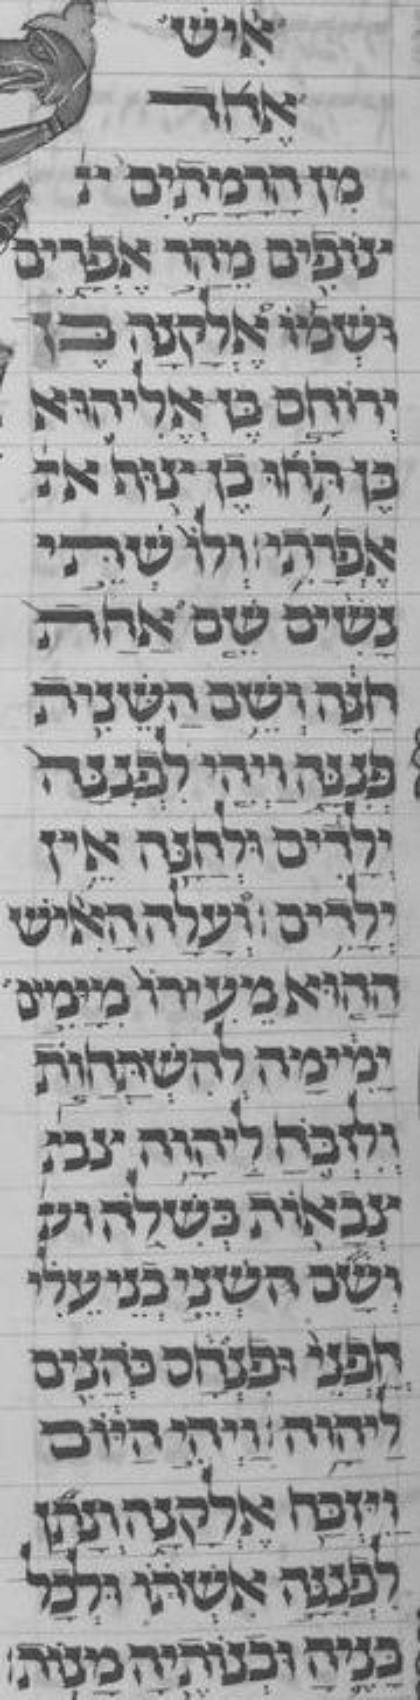 איש
אחד
מן הרמתים צ
צופים מהר אפרים
ושמו אלקנה בן
ירוחם בן אליהוא
בן תחו בן צוף אפ
אפרתי ולו שתי
נשים שם אחת
חנה ושם השנית
פננה ויהי לפננה
ילדים ולחנה אין
ילדים ועלה האיש
ההוא מעירו מימים
ימימה להשתחות
ולזבח ליהוה צבא
צבאות בשלה וש
ושם השני בני עלי
חפני ופנחס כהנים
ליהוה ויהי היום
ויזבח אלקנה ונתן
לפננה אשתו ולכל
בניה ובנותיה מנות׃